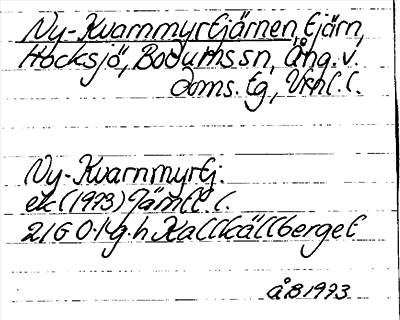 Ny-Kvarnmyrtjärnen, tjärn,
Hocksjö, Bodums sn, Ång. v.
doms. tg, Vrnl. l.
Ny-Kvarnmyrtj.
ek (1973) Jämtl. l.
21G 0-1g.h Kallkällberget
ÅB 1973